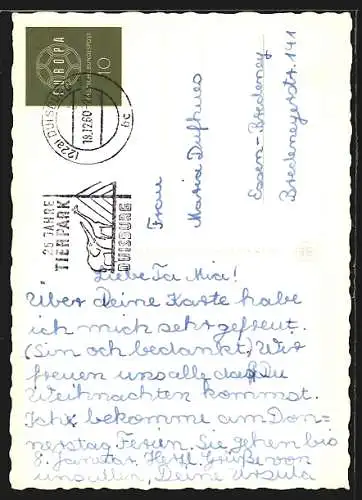 EUROPA
10
DEUTSCHE BUNDESPOST
(22a) DUISBURG
18.12.60
bc
25 JAHRE
TIERPARK
DUISBURG
Frau
Maria Dufhues
Essen-Bredeney
Bredeneyerstr. 141
Liebe Ta Mia!
Über Deine Karte habe
ich mich sehr gefreut.
(Sin och bedankt) Wir
freuen uns alle daß Du
Weihnachten kommst.
Ich bekomme am Don-
nerstag Ferien. Sie gehen bis
8. Januar. Herzl. Grüße von
uns allen, Deine Ursula